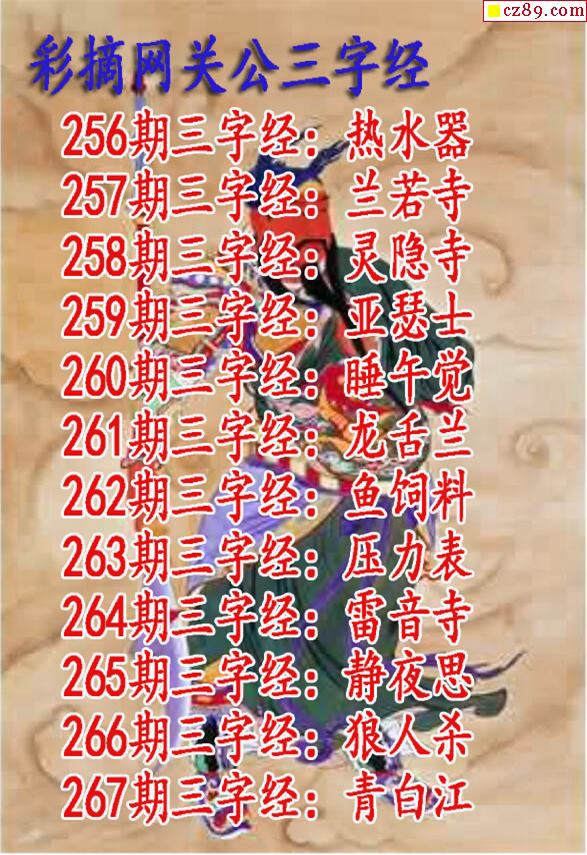 cz89.com
彩摘网关公三字经
256期三字经：热水器
257期三字经：兰若寺
258期三字经：灵隐寺
259期三字经：亚瑟士
260期三字经：睡午觉
261期三字经：龙舌兰
262期三字经：鱼饲料
263期三字经：压力表
264期三字经：雷音寺
265期三字经：静夜思
266期三字经：狼人杀
267期三字经：青白江